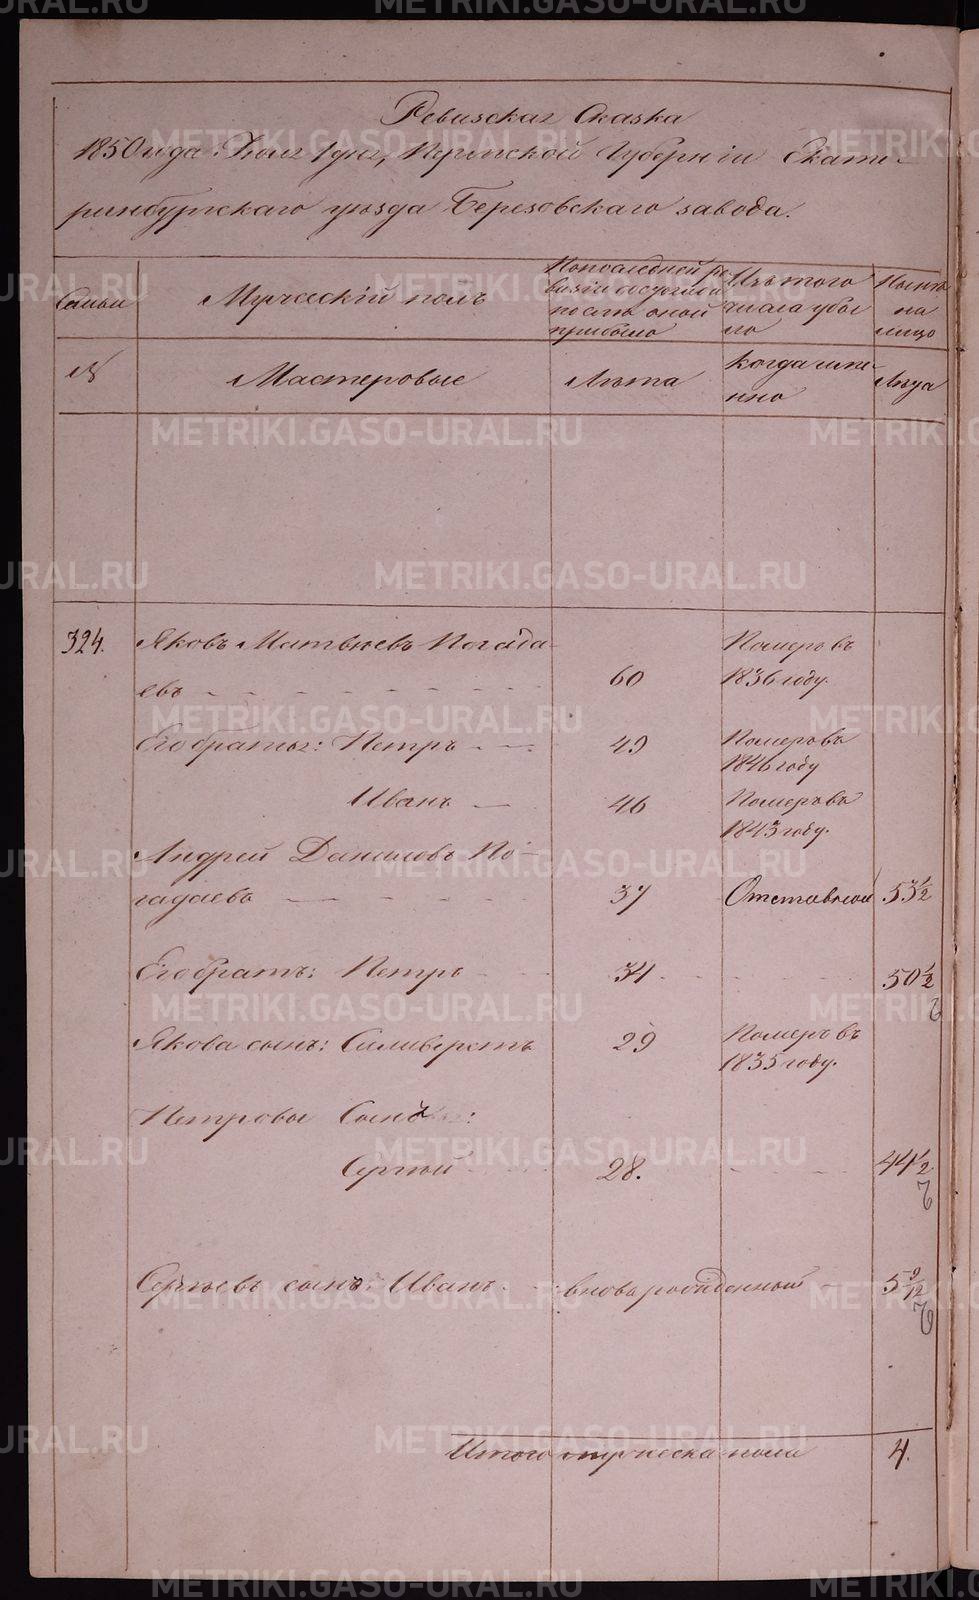 Ревизская Сказка
1850 года Июля 1 дня, Пермской Губерніи Екате-
ринбургскаго уѣзда Березовскаго завода.
Семьи
Мужескій полъ
По последней ре-
визіи состояло
и послѣ оной
прибыло
Изъ того
числа убы
ло
Нынѣ
на
лицо
№
Мастеровые
Лѣта
Когда име-
нно
Лѣта
324.
Яковъ Матвѣевъ Погада-
евъ
60
Померъ въ
1836 году.
Его братья: Петръ
49
Померъ въ
1846 году
Иванъ
46
Померъ въ
1843 году.
Андрей Даниловъ По-
гадаевъ
37
Отставной
53 1/2
Его братъ: Петръ
34
50 1/2
Якова сынъ: Силиверстъ
29
Померъ въ
1835 году.
Петровы Сынъ:
Сергей
28.
44 1/2
Сергѣевъ сынъ: Иванъ
вновь рожденный
5 9/12
Итого мужеска пола
4.
METRIKI.GASO-URAL.RU